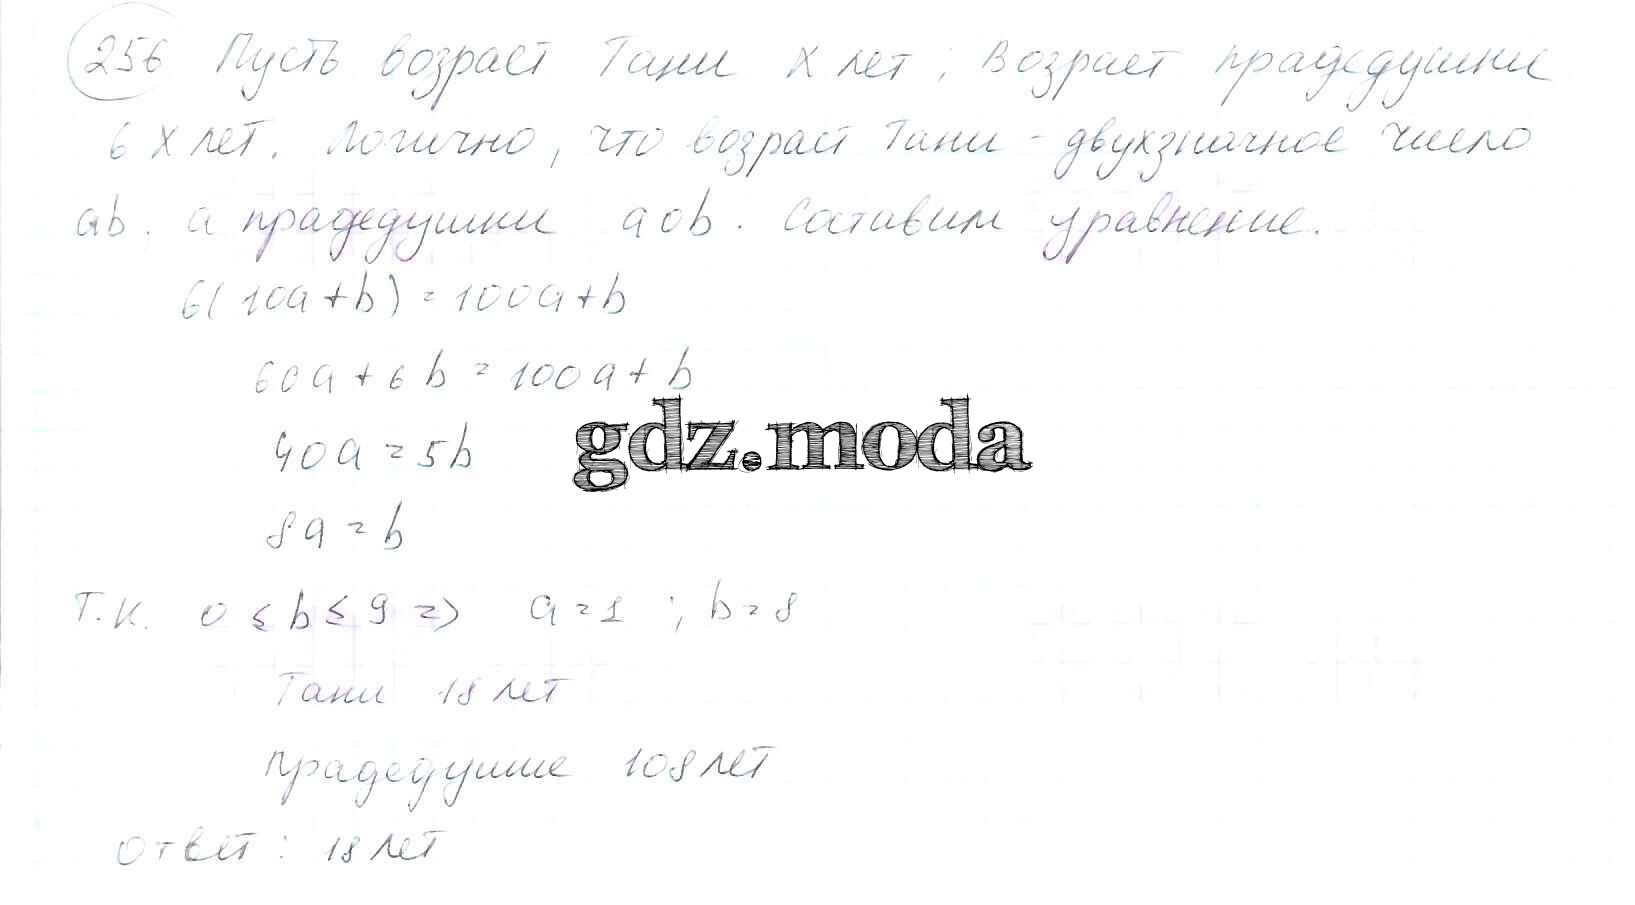 256 Пусть возраст Тани x лет; Возраст прадедушки
6 x лет. Логично, что возраст Тани - двухзначное число
ab. а прадедушки a0b. Составим уравнение.
6(10a+b) = 100a+b
60a + 6b = 100a + b
40a = 5b
gdz.moda
8a = b
Т.К. 0 ≤ b ≤ 9 => a = 1 ; b = 8
Тани 18 лет
Прадедушке 108 лет
Ответ: 18 лет